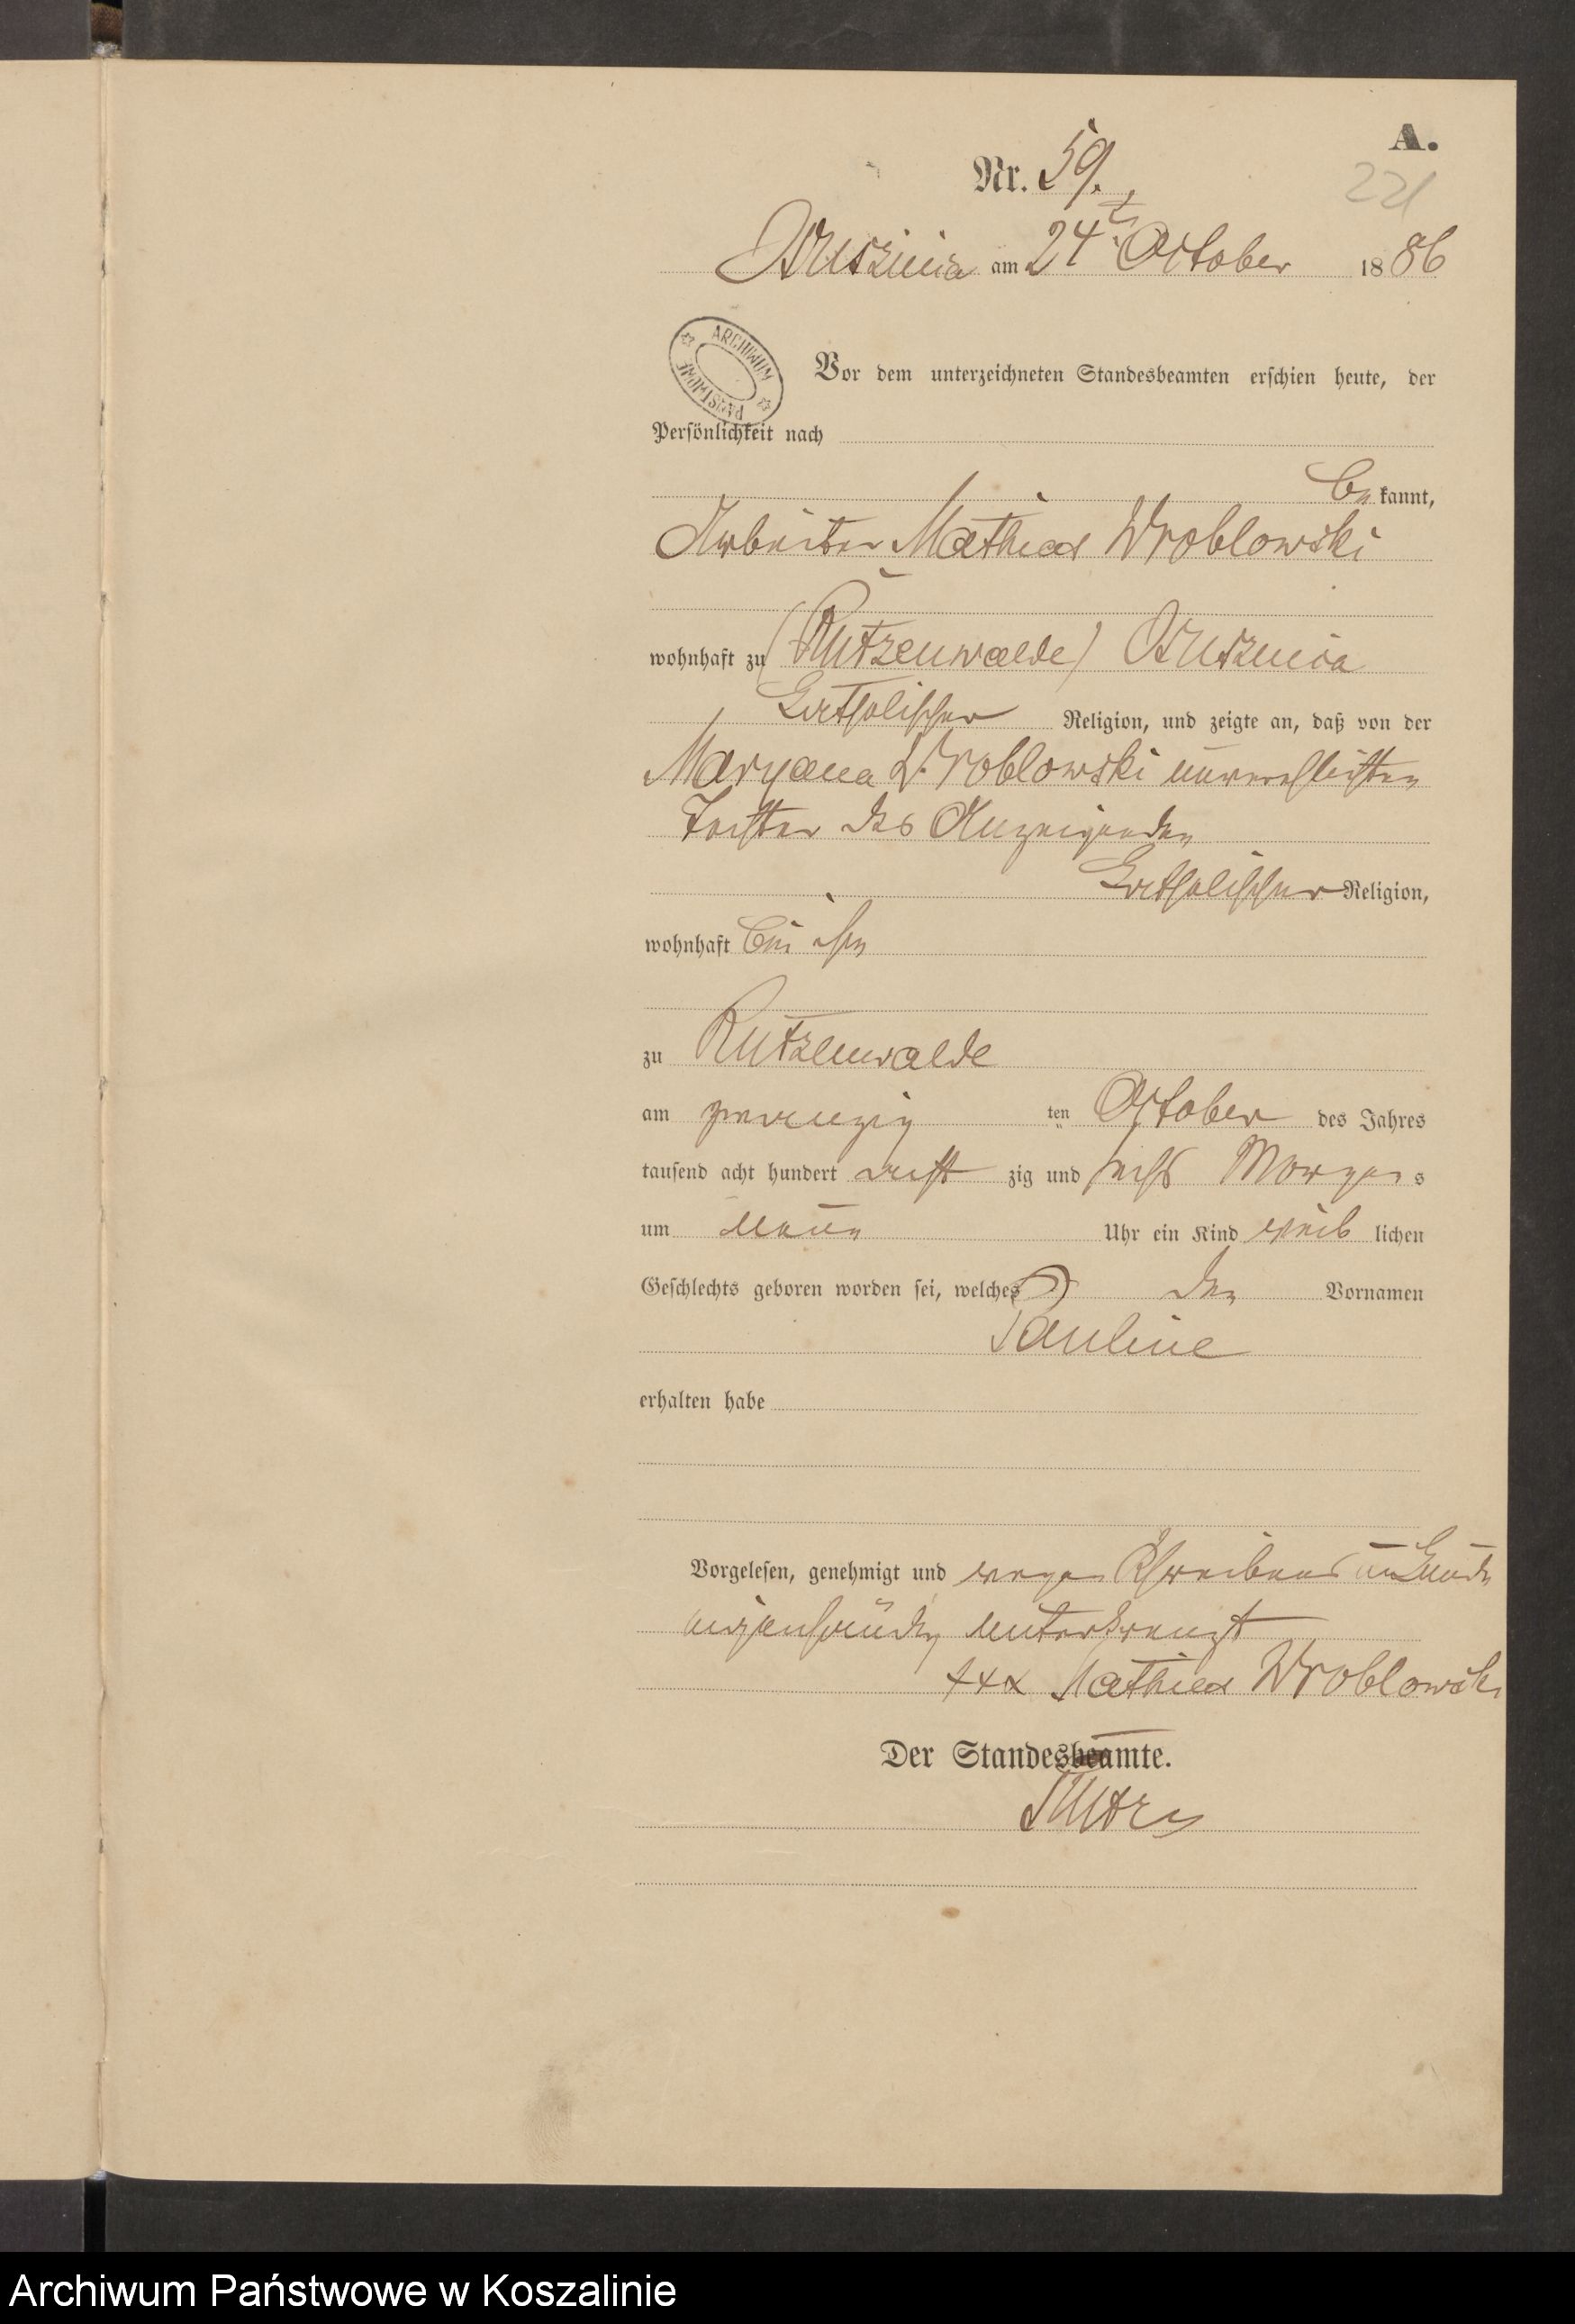 A.
Nr. 59.
221
Osusznica am 24ts October 1886
ARCHIWUM PAŃSTWOWE
Vor dem unterzeichneten Standesbeamten erschien heute, der
Persönlichkeit nach
be kannt,
Arbeiter Mathias Wroblowski
wohnhaft zu (Rutzenwalde) Osusznica
katholischer Religion, und zeigte an, daß von der
Maryana Wroblowski unverehelichten
Tochter des Anzeigenden
katholischer Religion,
wohnhaft bei ihm
zu Rutzenwalde
am zwanzig ten October des Jahres
tausend acht hundert acht zig und sechs Morgens
um neun Uhr ein Kind weib lichen
Geschlechts geboren worden sei, welches den Vornamen
Pauline
erhalten habe
Vorgelesen, genehmigt und wegen Schreibens unkunde
eigenhändig unterkreuzt
xxx Mathias Wroblowski
Der Standesbeamte.
Archiwum Państwowe w Koszalinie